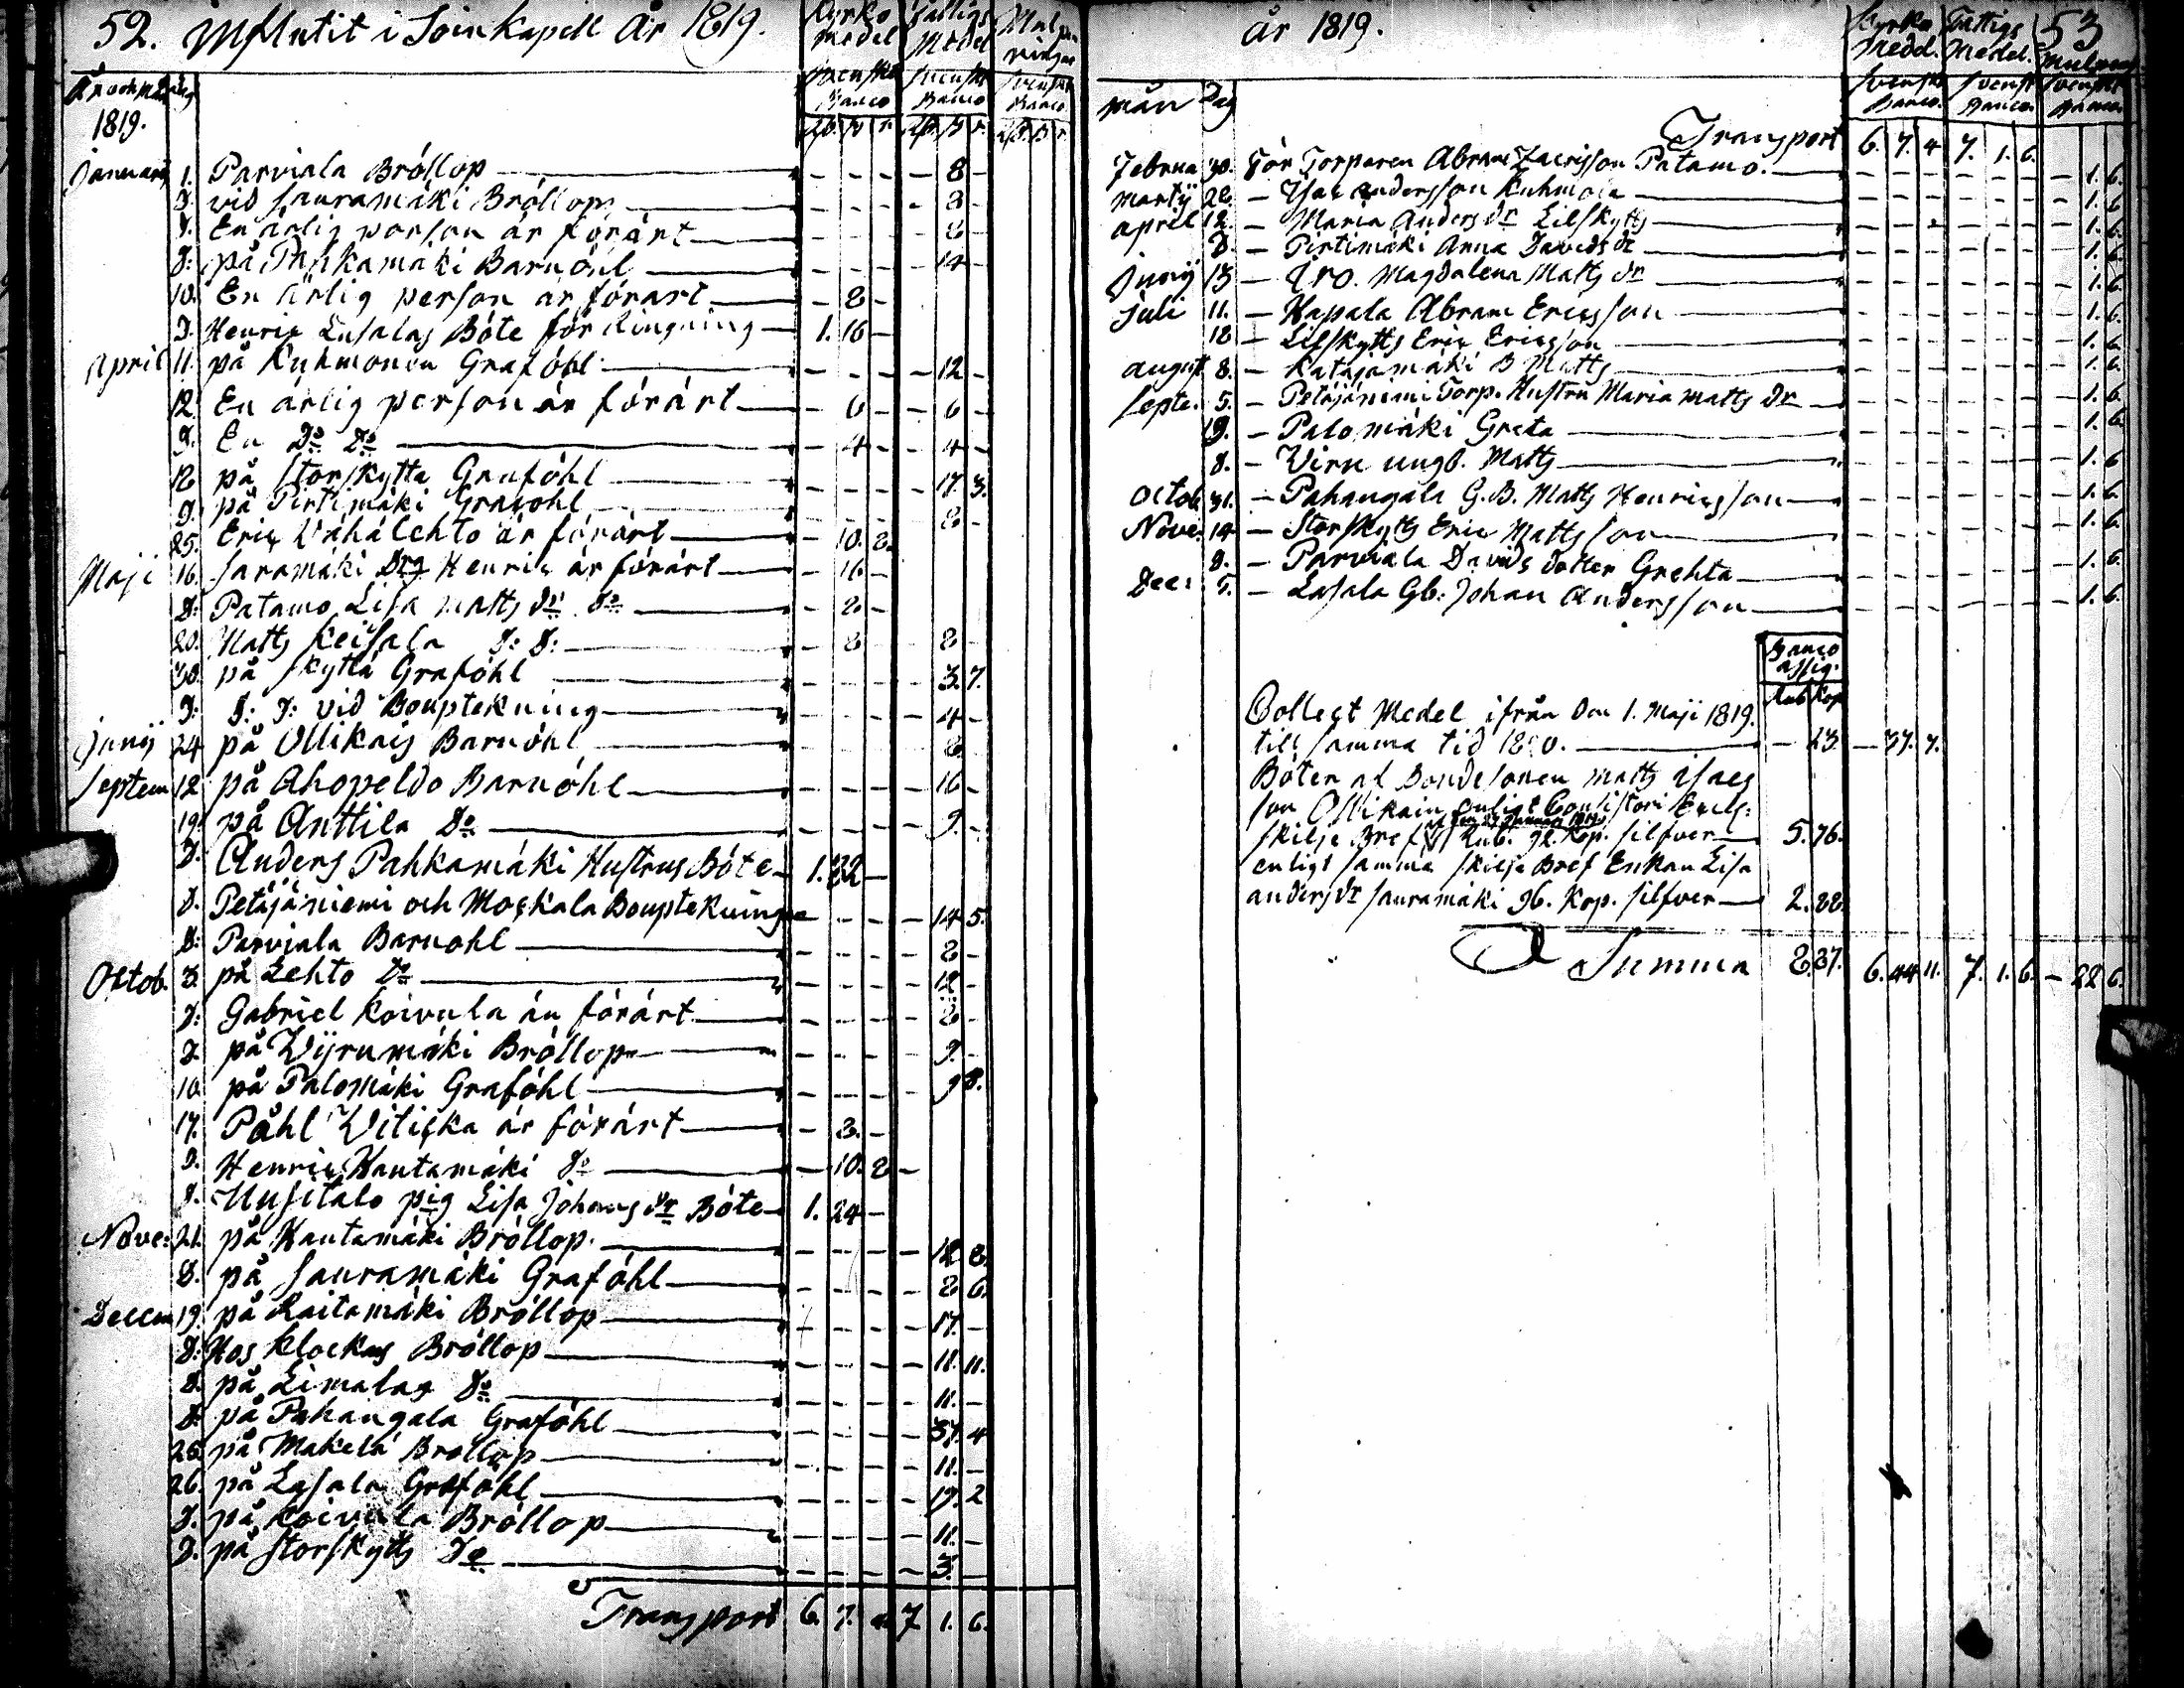 52. Influtit i Soin Kapell År 1819.
Kyrko medel Fattigs Medel
Svenska Banco Svenska Banco Svenska Banco
År och Mån Dag
1819.
Januarij 1. Parviala Bröllop — 8 -
D. vid Sauramäki Bröllop — 8 -
D. En ärlig person är förärt — 8 -
D: på Pahkamäki Barnöhl — 14 -
10. En ärlig person är förärt — 8 -
D. Henric Lusalas Böte för Ringning — 1. 16 -
April 11. på Kuhmonen Graföhl — 12 -
12. En ärlig person är förärt — 6 - - 6 -
D. En Do Do — 4 - - 4 -
12 på Storskytte Graföhl — 17. 3.
D. på Pirttimäki Graföhl — 8 -
25. Eric Vähälehto är förärt — 10. 8.
Maji 16. Saramäki Drg Henric är förärt — 16 -
D: Patamo Lisa Matts dr Do — 8 -
20. Matts Keisala D: D: — 8 8 -
30. på Skyttä Graföhl — 3. 7.
D: D: D: vid Bouptekning — 4 -
Junij 24 på Ollikais Barnöhl — 8.
Septem 12 på Ahopeldo Barnöhl — 16 -
19. på Anttila Do — 9. -
D. Anders Pahkamäki Hustrus Böte — 1. 32 -
D. Petäjäniemi och Moskala Bouptekningar — 14 5.
D: Parviala Barnohl — 8 -
Octob. 3. på Lehto Do — 12 -
D: Gabriel Koivula än förärt — 8 -
D. på Wyrumäki Bröllop — 9. -
10. på Palomäki Graföhl — 9 8.
17. Påhl Witiska är förärt — 8. -
D. Henric Hautamäki Do — 10. 8 -
D. Uusitalo pig Lisa Johans dr Böte — 1. 24 -
Nove: 21. på Hautamäki Bröllop. — 12 8.
D. på Sauramäki Graföhl — 8 6.
Decem 19. på Raitamäki Bröllop — 17. -
D: Hos Klockars Bröllop — 11. 11.
D. på Limalas Do — 11. -
D. på Pahangala Graföhl — 37. 4
26. på Mäkelä Bröllop — 11. -
26. på Lasala Graföhl — 19. 2
D. på Koivula Bröllop — 11. -
D. på Storskytts Do — 3. -
Transport 6. 7. 4. 7 1. 6.
år 1819. 53
Kyrko Medel. Fattigs Medel.
Svensk Banco. Svensk Banco. Svensk Banco
mån Dag
Transport 6. 7. 4 7. 1. 6.
Februa 30. För Torparen Abram Zacrisson Patamo. — 1. 6.
Martij 28. — Isac Andersson Kuhmola — 1. 6.
April 12. — Maria Anders dr Lilskytts — 1. 6.
D. — Pirtimäki Anna Davids dr — 1. 6.
Junij 13 — Dro. Magdalena Matts dr — 1. 6.
Juli 11. — Hapala Abram Ericsson — 1. 6.
18 — Lilskytts Eric Ericsson — 1. 6.
August 8. — Katajamäki B Matts — 1. 6.
Septe. 5. — Petäjäniemi Torp. Hustru Maria Matts dr — 1. 6.
19. — Palomäki Greta — 1. 6.
D. — Wirn ungb. Matts — 1. 6
Octob 31. — Pahangala G. B. Matts Henricsson — 1. 6.
Nove. 14 — Storskytts Eric Mattsson — 1. 6.
D. — Parviala Davids dotter Grehta — 1. 6.
Dec: 5. — Lasala Gb: Johan Andersson — 1. 6.
Banco assig.
Rub Kop
Collect Medel ifrån den 1. Maji 1819.
till samma tid 1820. — 23. — 37. 7.
Böter af Bondesonen Matts Isacs
son Ollikain enligt Consistori Eccls:
af den 27 Januari 1819
skilje Bref Rub. 92. Kop. silfver — 5. 76.
enligt samma skilje Bref Enkan Lisa
anders dr Sauramäki 96. Kop. silfver — 2. 88.
Summa 8 87. 6. 44 11. 7. 1. 6. — 22 6.